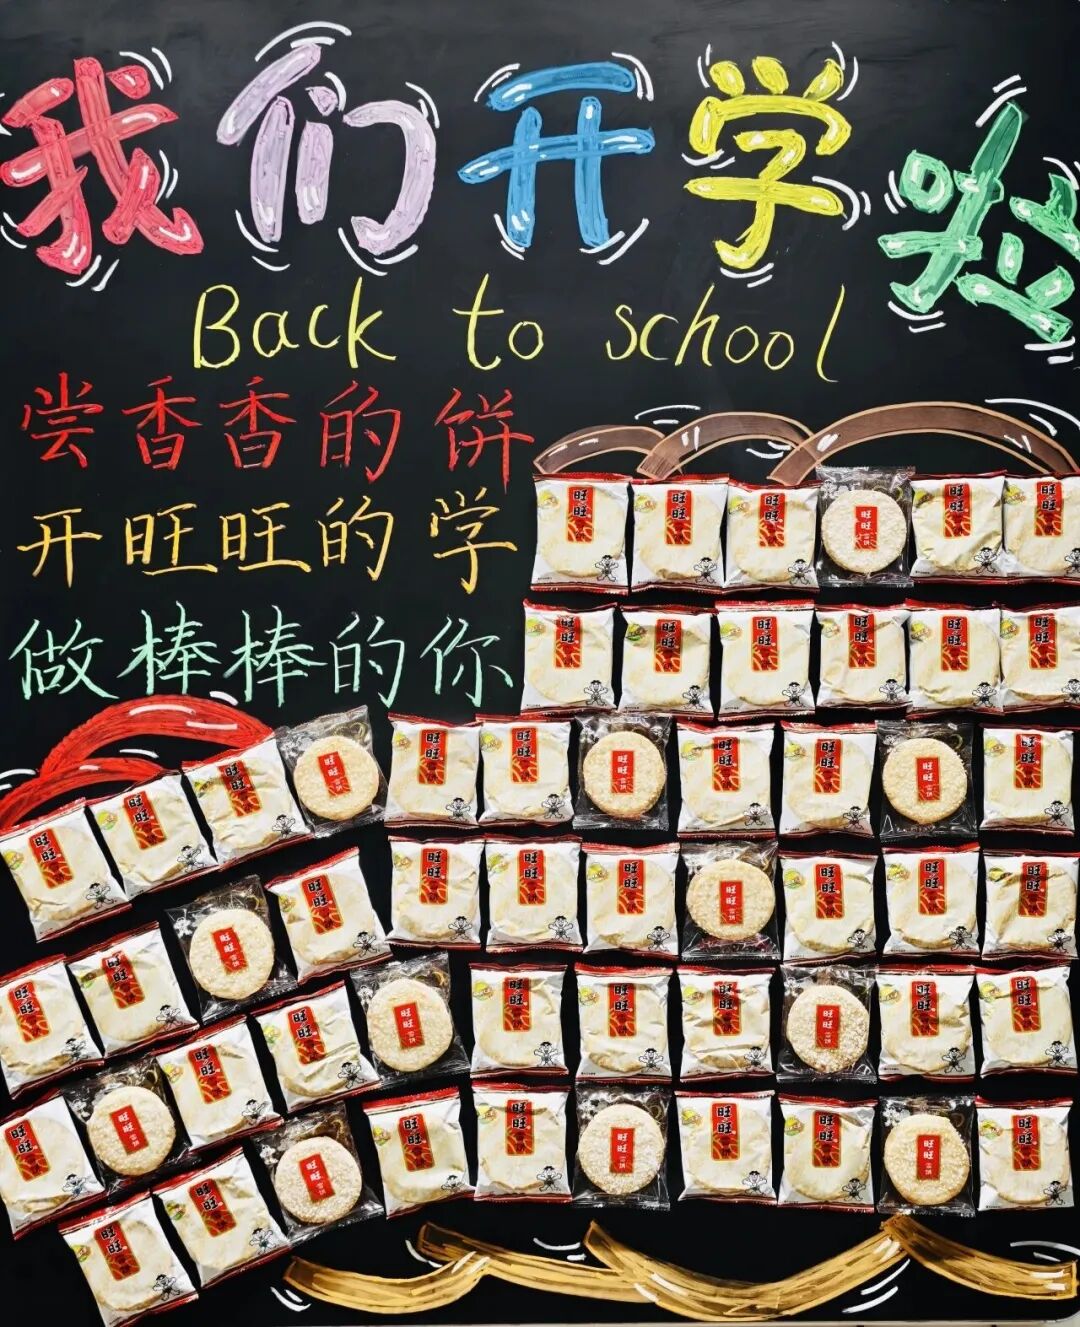 我们开学啦
Back to school
尝香香的饼
开旺旺的学
做棒棒的你
旺旺
雪饼